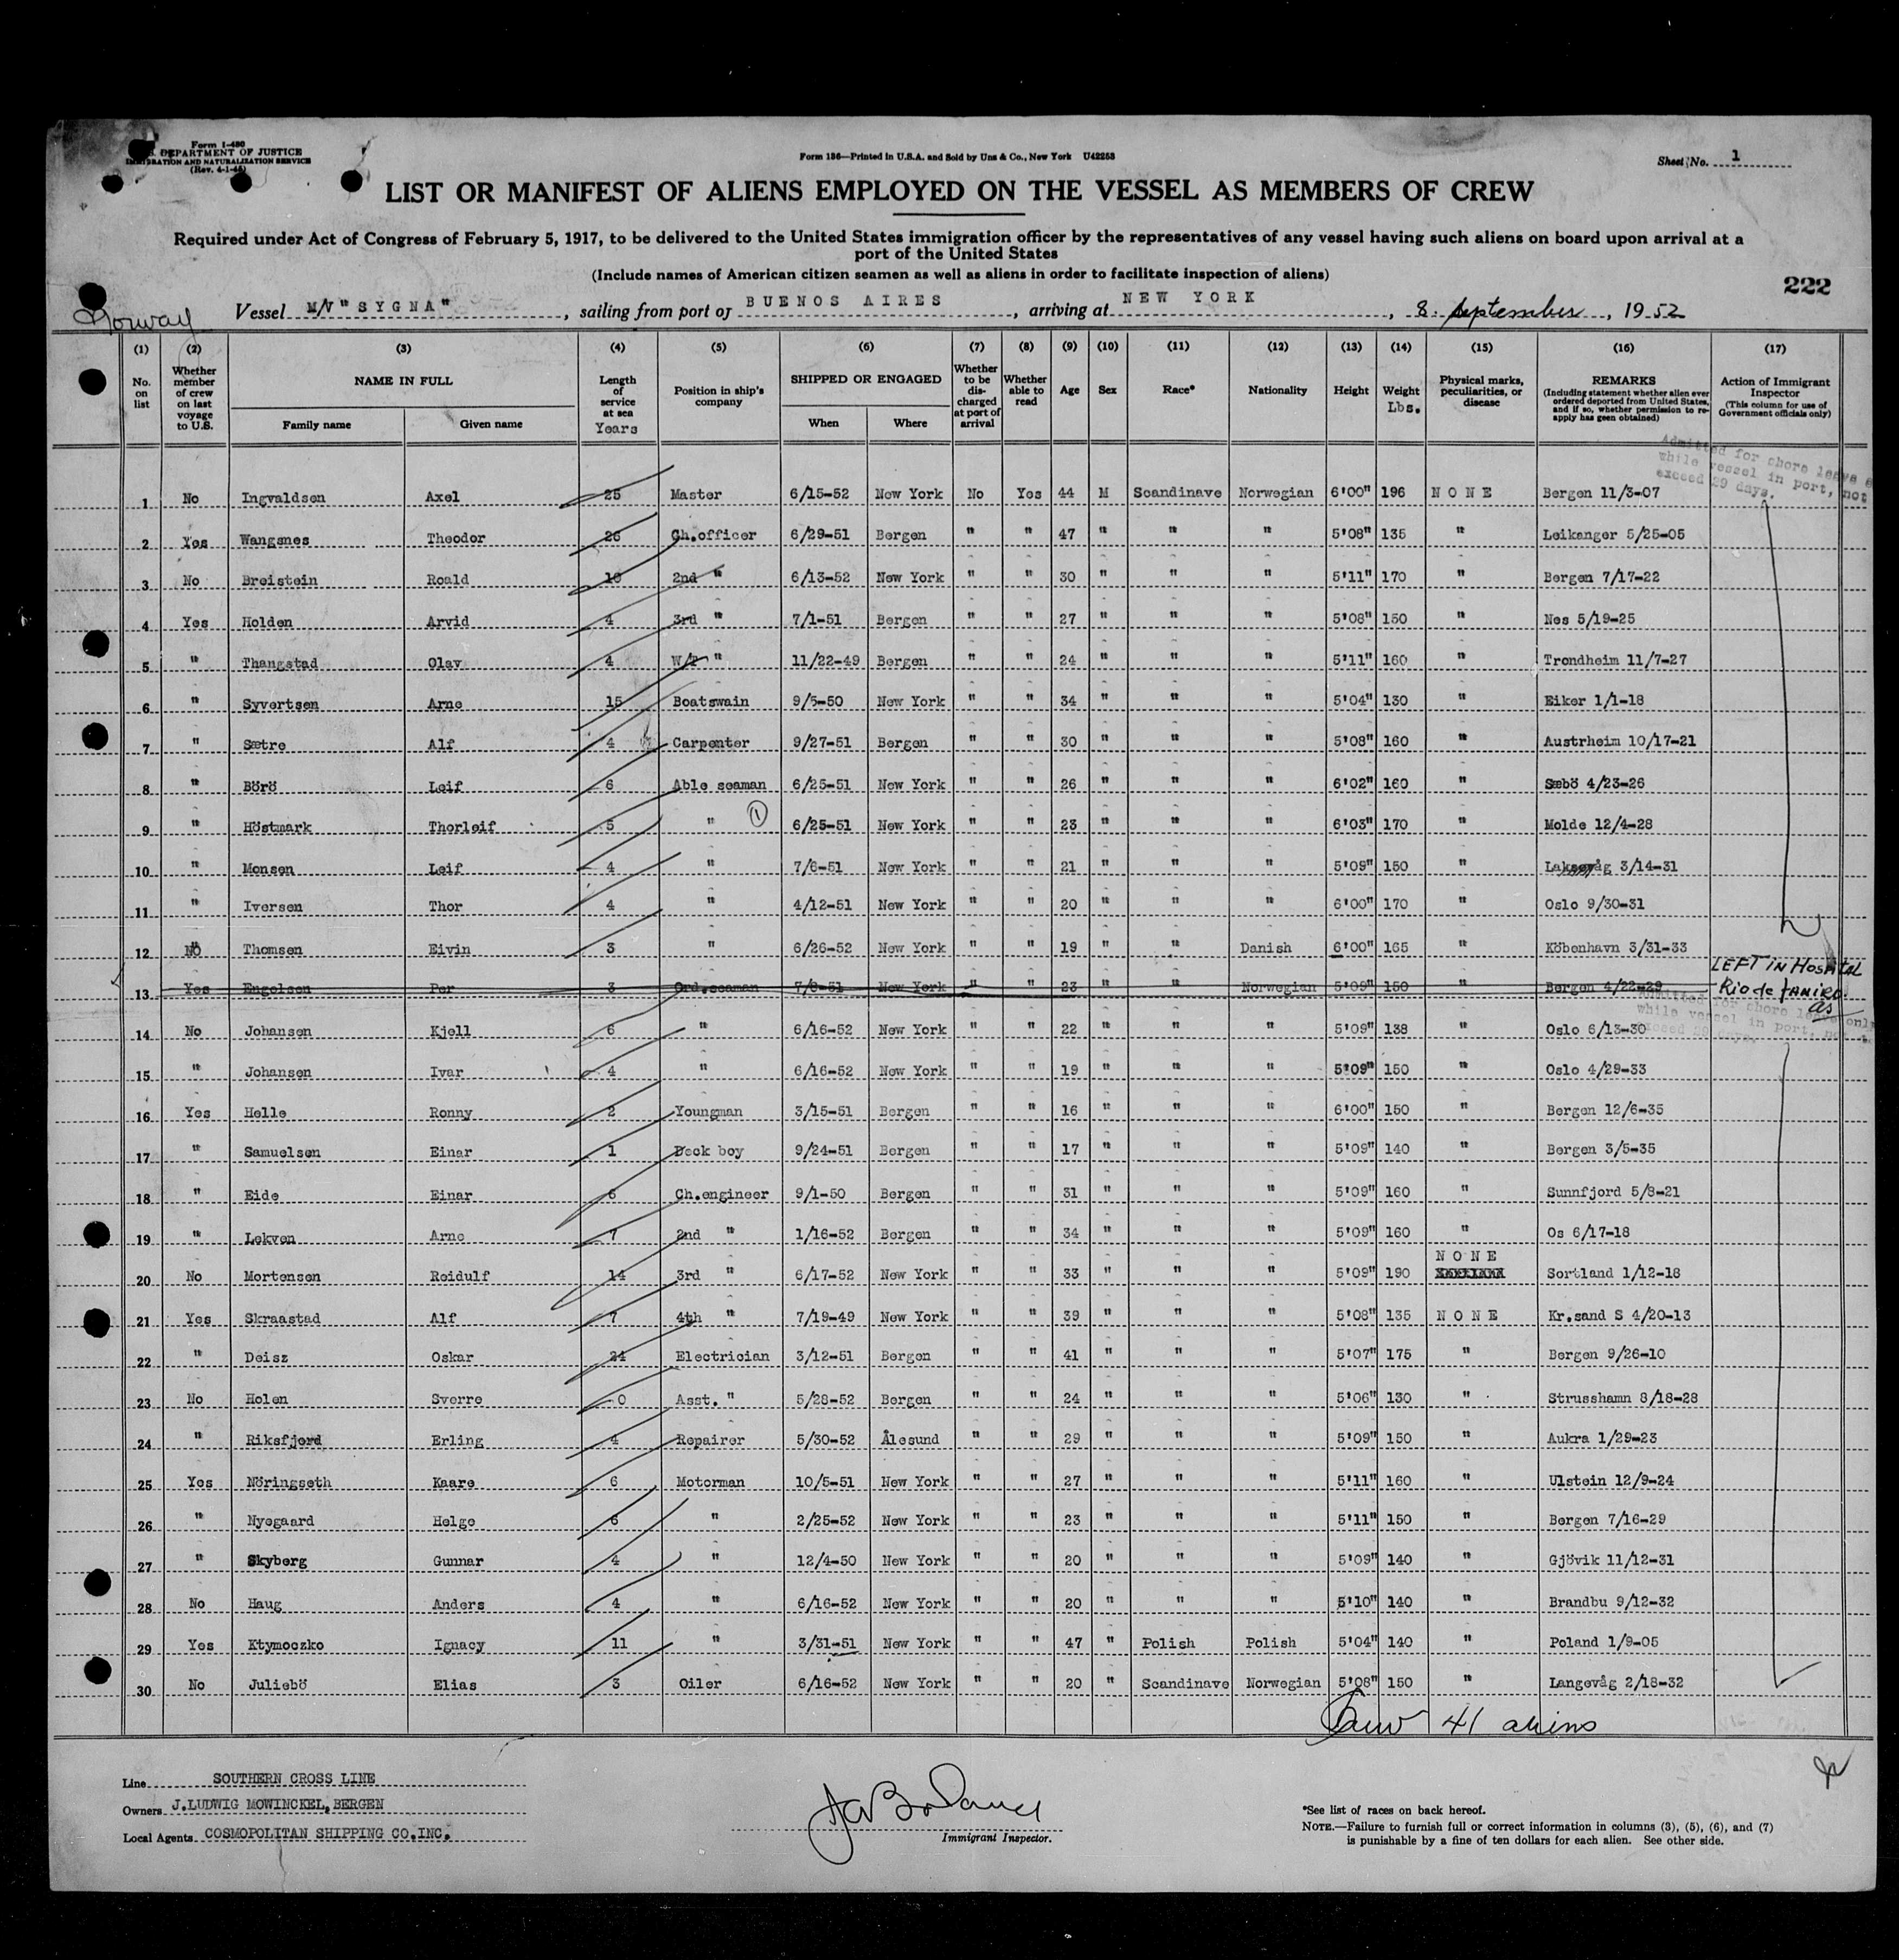 Form I-480
U.S. DEPARTMENT OF JUSTICE
IMMIGRATION AND NATURALIZATION SERVICE
(Rev. 4-1-45)
Form 136—Printed in U.S.A. and Sold by Unz & Co., New York U42253
Sheet No. 1
LIST OR MANIFEST OF ALIENS EMPLOYED ON THE VESSEL AS MEMBERS OF CREW
Required under Act of Congress of February 5, 1917, to be delivered to the United States immigration officer by the representatives of any vessel having such aliens on board upon arrival at a
port of the United States
(Include names of American citizen seamen as well as aliens in order to facilitate inspection of aliens)
222
Norway
Vessel M/V "SYGNA", sailing from port of BUENOS AIRES, arriving at NEW YORK, 8. September, 1952
(1) (2) (3) (4) (5) (6) (7) (8) (9) (10) (11) (12) (13) (14) (15) (16) (17)
No. on list
Whether member of crew on last voyage to U.S.
NAME IN FULL
Family name Given name
Length of service at sea Years
Position in ship's company
SHIPPED OR ENGAGED
When Where
Whether to be discharged at port of arrival
Whether able to read
Age
Sex
Race*
Nationality
Height
Weight Lbs.
Physical marks, peculiarities, or disease
REMARKS
(Including statement whether alien ever ordered deported from United States, and if so, whether permission to reapply has been obtained)
Action of Immigrant Inspector
(This column for use of Government officials only)
Admitted for shore leave
while vessel in port, not
exceed 29 days.
1 No Ingvaldsen Axel 25 Master 6/15-52 New York No Yes 44 M Scandinave Norwegian 6'00" 196 NONE Bergen 11/3-07
2 Yes Wangsnes Theodor 26 Ch.officer 6/29-51 Bergen " " 47 " " " 5'08" 135 " Leikanger 5/25-05
3 No Breistein Roald 10 2nd " 6/13-52 New York " " 30 " " " 5'11" 170 " Bergen 7/17-22
4 Yes Holden Arvid 4 3rd " 7/1-51 Bergen " " 27 " " " 5'08" 150 " Nes 5/19-25
5 " Thangstad Olav 4 W/T " 11/22-49 Bergen " " 24 " " " 5'11" 160 " Trondheim 11/7-27
6 " Syvertsen Arne 15 Boatswain 9/5-50 New York " " 34 " " " 5'04" 130 " Eiker 1/1-18
7 " Sætre Alf 4 Carpenter 9/27-51 Bergen " " 30 " " " 5'08" 160 " Austrheim 10/17-21
8 " Börö Leif 6 Able seaman 6/25-51 New York " " 26 " " " 6'02" 160 " Sæbö 4/23-26
9 " Höstmark Thorleif 5 " (1) 6/25-51 New York " " 23 " " " 6'03" 170 " Molde 12/4-28
10 " Monsen Leif 4 " 7/6-51 New York " " 21 " " " 5'09" 150 " Laksevåg 3/14-31
11 " Iversen Thor 4 " 4/12-51 New York " " 20 " " " 6'00" 170 " Oslo 9/30-31
12 No Thomsen Eivin 3 " 6/26-52 New York " " 19 " " Danish 6'00" 165 " Köbenhavn 3/31-33
13 Yes Engelsen Per 3 Ord.seaman 7/8-51 New York " " 23 " " Norwegian 5'09" 150 " Bergen 4/22-29 LEFT IN HOSPITAL
RIO de JANIRO.
Admitted for shore leave only
while vessel in port, not
exceed 29 days.
14 No Johansen Kjell 6 " 6/16-52 New York " " 22 " " " 5'09" 138 " Oslo 6/13-30
15 " Johansen Ivar 4 " 6/16-52 New York " " 19 " " " 5'09" 150 " Oslo 4/29-33
16 Yes Helle Ronny 2 Youngman 3/15-51 Bergen " " 16 " " " 6'00" 150 " Bergen 12/6-35
17 " Samuelsen Einar 1 Deck boy 9/24-51 Bergen " " 17 " " " 5'09" 140 " Bergen 3/5-35
18 " Eide Einar 6 Ch.engineer 9/1-50 Bergen " " 31 " " " 5'09" 160 " Sunnfjord 5/8-21
19 " Lekven Arne 7 2nd " 1/16-52 Bergen " " 34 " " " 5'09" 160 " Os 6/17-18
20 No Mortensen Reidulf 14 3rd " 6/17-52 New York " " 33 " " " 5'09" 190 NONE Sortland 1/12-18
21 Yes Skraastad Alf 7 4th " 7/19-49 New York " " 39 " " " 5'08" 135 NONE Kr.sand S 4/20-13
22 " Deisz Oskar 24 Electrician 3/12-51 Bergen " " 41 " " " 5'07" 175 " Bergen 9/26-10
23 No Holen Sverre 0 Asst. " 5/28-52 Bergen " " 24 " " " 5'06" 130 " Strusshamn 8/18-28
24 " Riksfjord Erling 4 Repairer 5/30-52 Ålesund " " 29 " " " 5'09" 150 " Aukra 1/29-23
25 Yes Nöringseth Kaare 6 Motorman 10/5-51 New York " " 27 " " " 5'11" 160 " Ulstein 12/9-24
26 " Nyegaard Helge 6 " 2/25-52 New York " " 23 " " " 5'11" 150 " Bergen 7/16-29
27 " Skyberg Gunnar 4 " 12/4-50 New York " " 20 " " " 5'09" 140 " Gjövik 11/12-31
28 No Haug Anders 4 " 6/16-52 New York " " 20 " " " 5'10" 140 " Brandbu 9/12-32
29 Yes Ktymoczko Ignacy 11 " 3/31-51 New York " " 47 " Polish Polish 5'04" 140 " Poland 1/9-05
30 No Juliebö Elias 3 Oiler 6/16-52 New York " " 20 " Scandinave Norwegian 5'08" 150 " Langevåg 2/18-32
41 aliens
Line SOUTHERN CROSS LINE
Owners J.LUDWIG MOWINCKEL, BERGEN
Local Agents COSMOPOLITAN SHIPPING CO.INC.
Immigrant Inspector.
*See list of races on back hereof.
NOTE.—Failure to furnish full or correct information in columns (3), (5), (6), and (7)
is punishable by a fine of ten dollars for each alien. See other side.